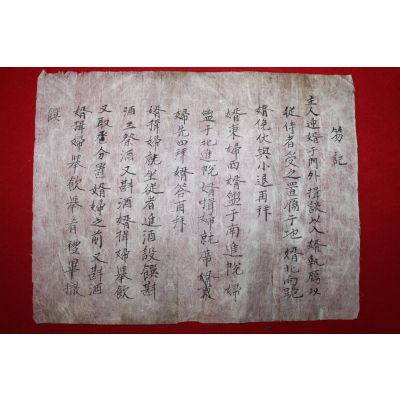 笏記
主人迎婿于門外揖讓以入婿執鴈以
從侍者受之置鴈于地 婿北向跪
婿俛伏興小退再拜
婿東婦西婿盥于南進帨婦
盥于北進帨婿揖婦就席 婿
婦先四拜婿答再拜
婿揖婦就坐從者進酒設饌斟
酒祭酒又斟酒婿揖婦擧飮
又取巹分置婿婦之前又斟酒
婿揖婦擧飮無肴禮畢撤
饌